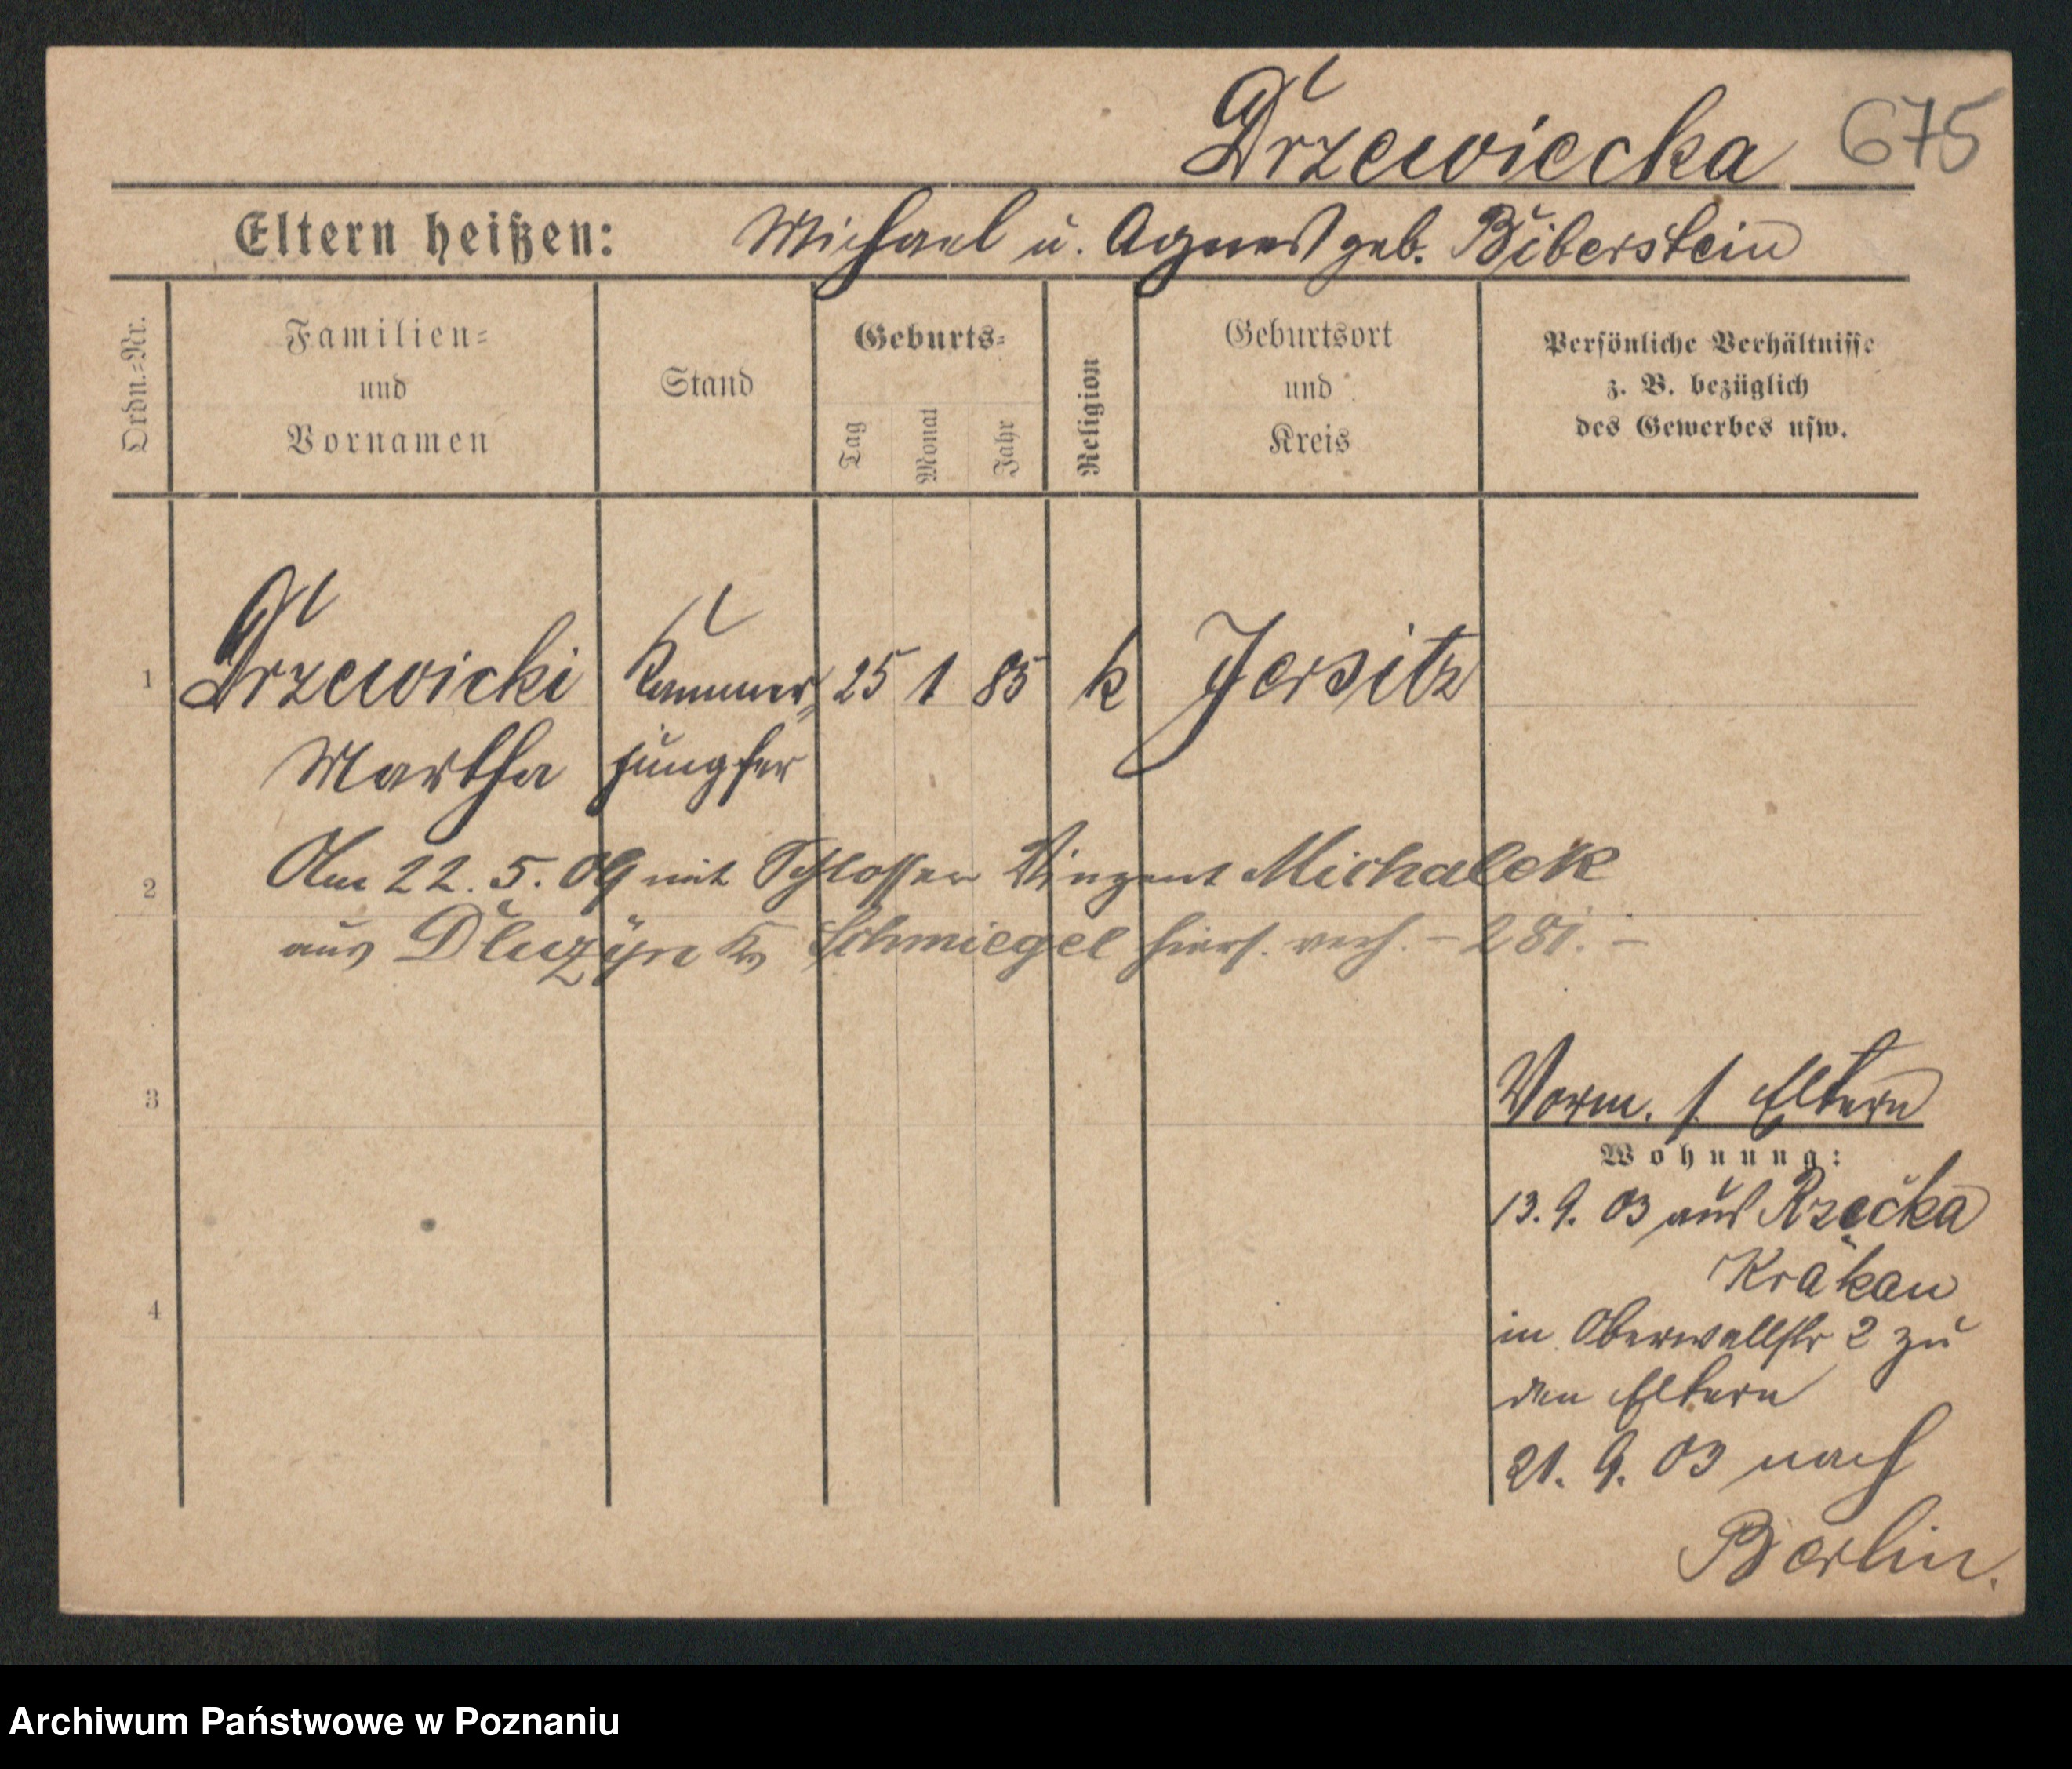 Drzewiecka 675
Eltern heißen: Michael u. Agnes geb. Biberstein
Ordn.-Nr.
Familien-
und
Vornamen
Stand
Geburts-
Tag
Monat
Jahr
Religion
Geburtsort
und
Kreis
Persönliche Verhältnisse
z. B. bezüglich
des Gewerbes usw.
1 Drzewicki Kammer- 25 1 85 k Jersitz
Martha jungfer
2 Am 22. 5. 09 mit Schlosser Vinzent Michalek
aus Dluzyn Kr Schmiegel hiers. verh. - 281. -
3
Vorm. s. Eltern
Wohnung:
13. 9. 03 aus Rzecka
Krakau
4
in Oberwallstr 2 zu
den Eltern
21. 9. 03 nach
Berlin.
Archiwum Państwowe w Poznaniu